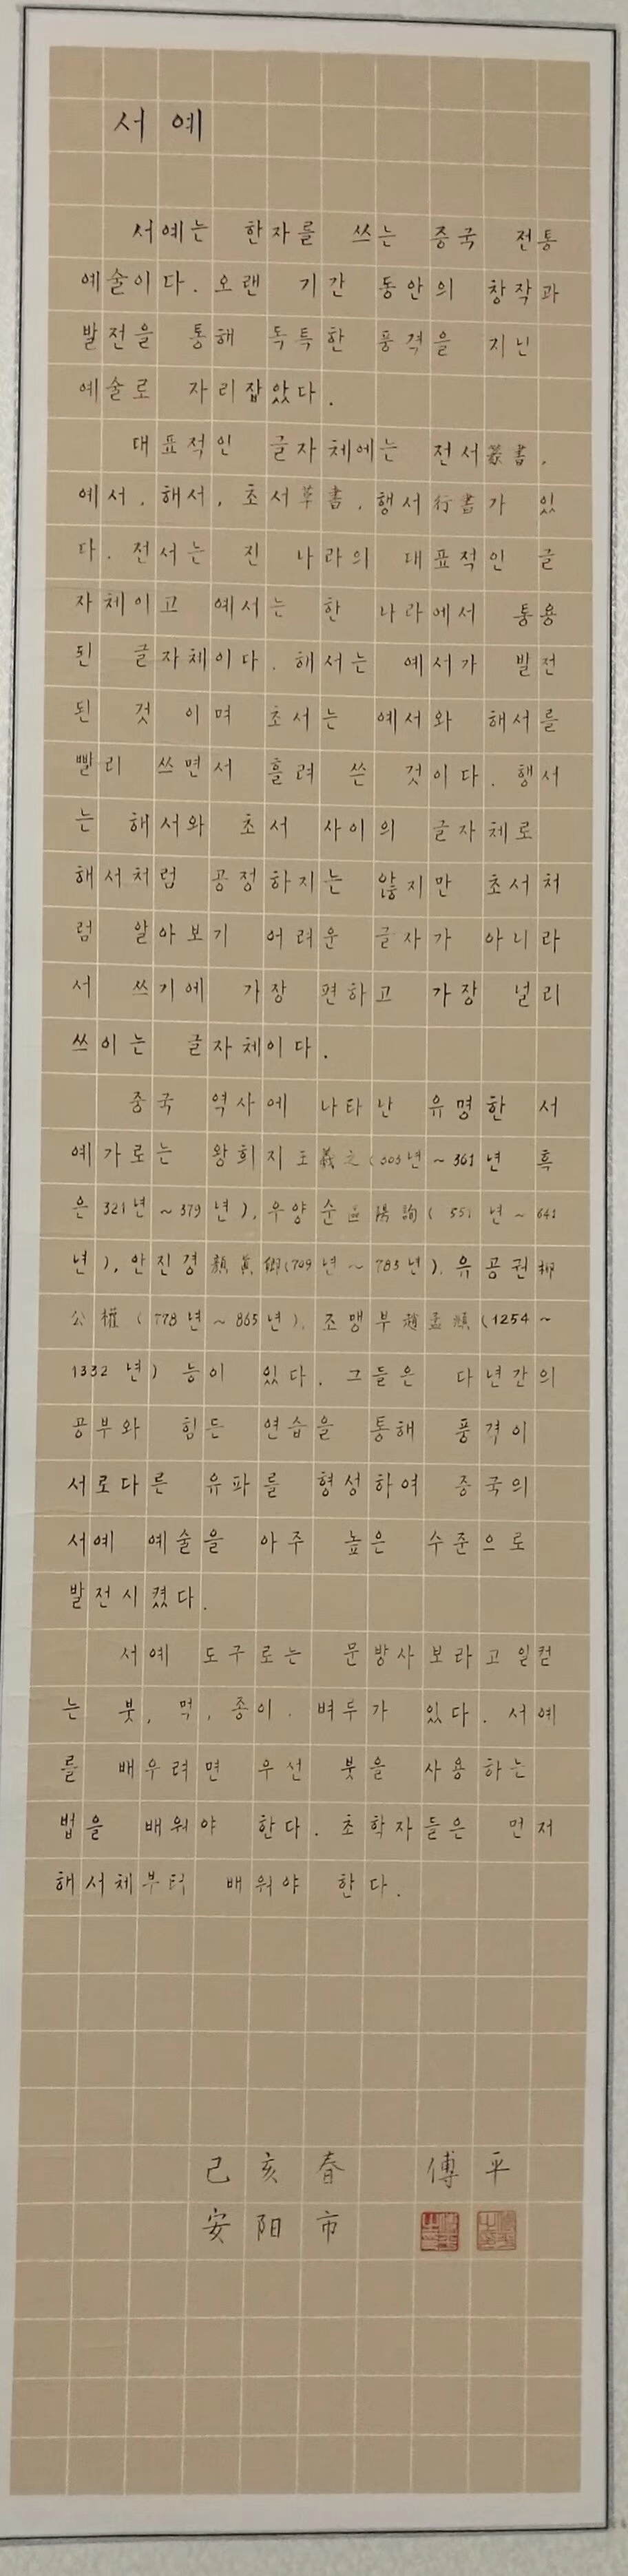 서예
서예는 한자를 쓰는 중국 전통
예술이다. 오랜 기간 동안의 창작과
발전을 통해 독특한 풍격을 지닌
예술로 자리잡았다.
대표적인 글자체에는 전서篆書,
예서, 해서, 초서草書, 행서行書가 있
다. 전서는 진 나라의 대표적인 글
자체이고 예서는 한 나라에서 통용
된 글자체이다. 해서는 예서가 발전
된 것 이며 초서는 예서와 해서를
빨리 쓰면서 흘려 쓴 것이다. 행서
는 해서와 초서 사이의 글자체로
해서처럼 공정하지는 않지만 초서처
럼 알아보기 어려운 글자가 아니라
서 쓰기에 가장 편하고 가장 널리
쓰이는 글자체이다.
중국 역사에 나타난 유명한 서
예가로는 왕희지王羲之(303년~361년 혹
은 321년~379년), 우양순歐陽詢(557년~641
년), 안진경顏真卿(709년~785년), 유공권柳
公權(778년~865년), 조맹부趙孟頫(1254~
1332년) 등이 있다. 그들은 다년간의
공부와 힘든 연습을 통해 풍격이
서로다른 유파를 형성하여 중국의
서예 예술을 아주 높은 수준으로
발전시켰다.
서예 도구로는 문방사보라고 일컫
는 붓, 먹, 종이, 벼루가 있다. 서예
를 배우려면 우선 붓을 사용하는
법을 배워야 한다. 초학자들은 먼저
해서체부터 배워야 한다.
己亥春 傅平
安阳市